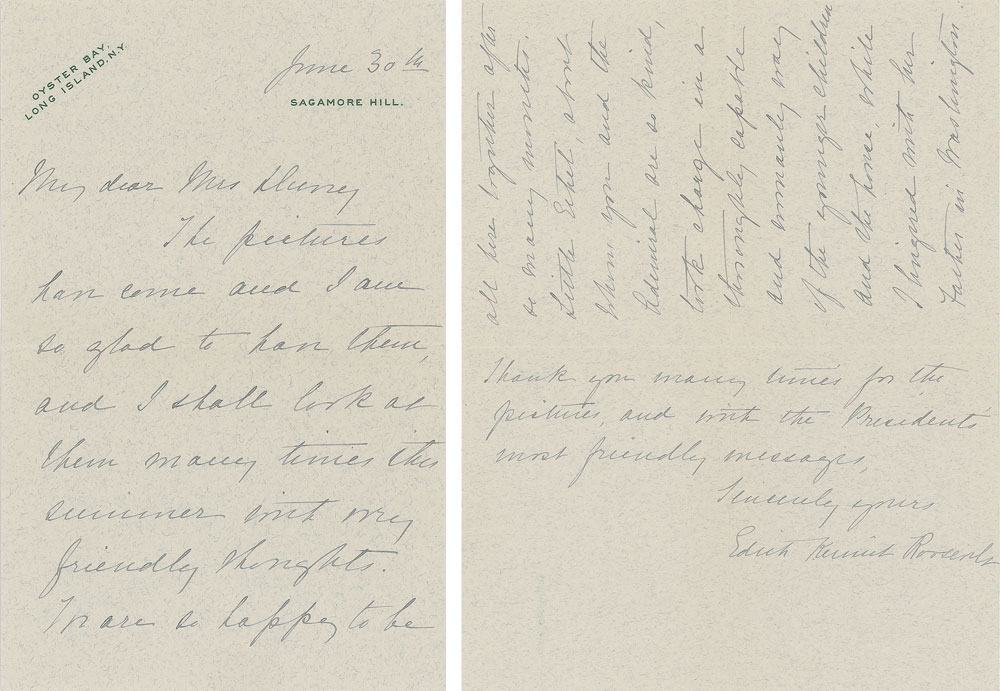 OYSTER BAY,
LONG ISLAND, N.Y.
June 30th
SAGAMORE HILL.
My dear Mrs
The pictures
have come and I am
so glad to have them,
and I shall look at
them many times this
summer with very
friendly thoughts.
We are so happy to be
all here together after
so many months.
Little Ethel, about
whom you and the
Admiral are so kind,
took charge in a
thoroughly capable
and womanly way
of the younger children
and the home, while
I lingered with his
Father in Washington.
Thank you many times for the
pictures, and with the Presidents
most friendly messages,
Sincerely yours
Edith Kermit Roosevelt